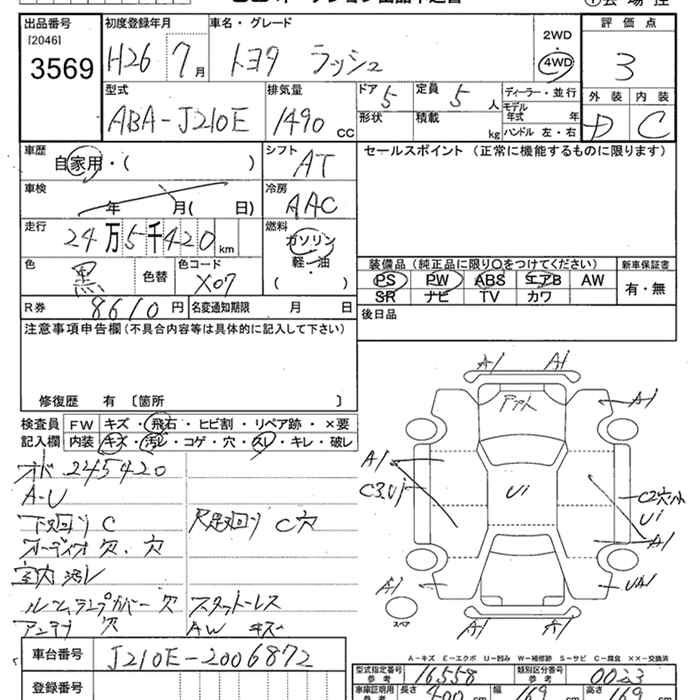 出品番号 初度登録年月 車名・グレード 評価点
[2046]
3569 H26年 7月 トヨタ ラッシュ 2WD 4WD 3
型式 排気量 ドア 定員 ディーラー・並行 外装 内装
ABA-J210E 1490 cc 5 5人 モデル年式 年 D C
形状 積載 kg ハンドル 左・右
車歴 シフト セールスポイント (正常に機能するものに限ります)
自家用・( ) AT
車検 冷房
年 月( 日) AAC
走行 燃料
24万5千420km ガソリン
色 色替 色コード 軽・油 装備品 (純正品に限り○をつけてください) 新車保証書
黒 X07 ( ) PS PW ABS エアB AW 有・無
SR ナビ TV カワ
R券 8610円 名変通知期限 月 日 後日品
注意事項申告欄 (不具合内容等は具体的に記入して下さい)
修復歴 有 〔箇所 〕
検査員 FW キズ・飛石・ヒビ割・リペア跡・×要
記入欄 内装 キズ・汚レ・コゲ・穴・スレ・キレ・破レ
オド 245420
A-U
下廻り C
オーディオ 穴、穴
室内汚レ
ルームランプカバー 穴 スタットレス
アンテナ 穴 AW キズ
C穴
A1 A1
A1
A1
Ui
Ui
A1
A1
A1 A1
スペア
A-キズ E-エクボ U-凹み W-補修跡 S-サビ C-腐食 ××-交換済
車台番号 J210E-2006872
型式指定番号 参考 16558 類別区分番号 参考
登録番号 車庫証明用 参考 長さ 400 cm 幅 169 cm 高さ 169 cm